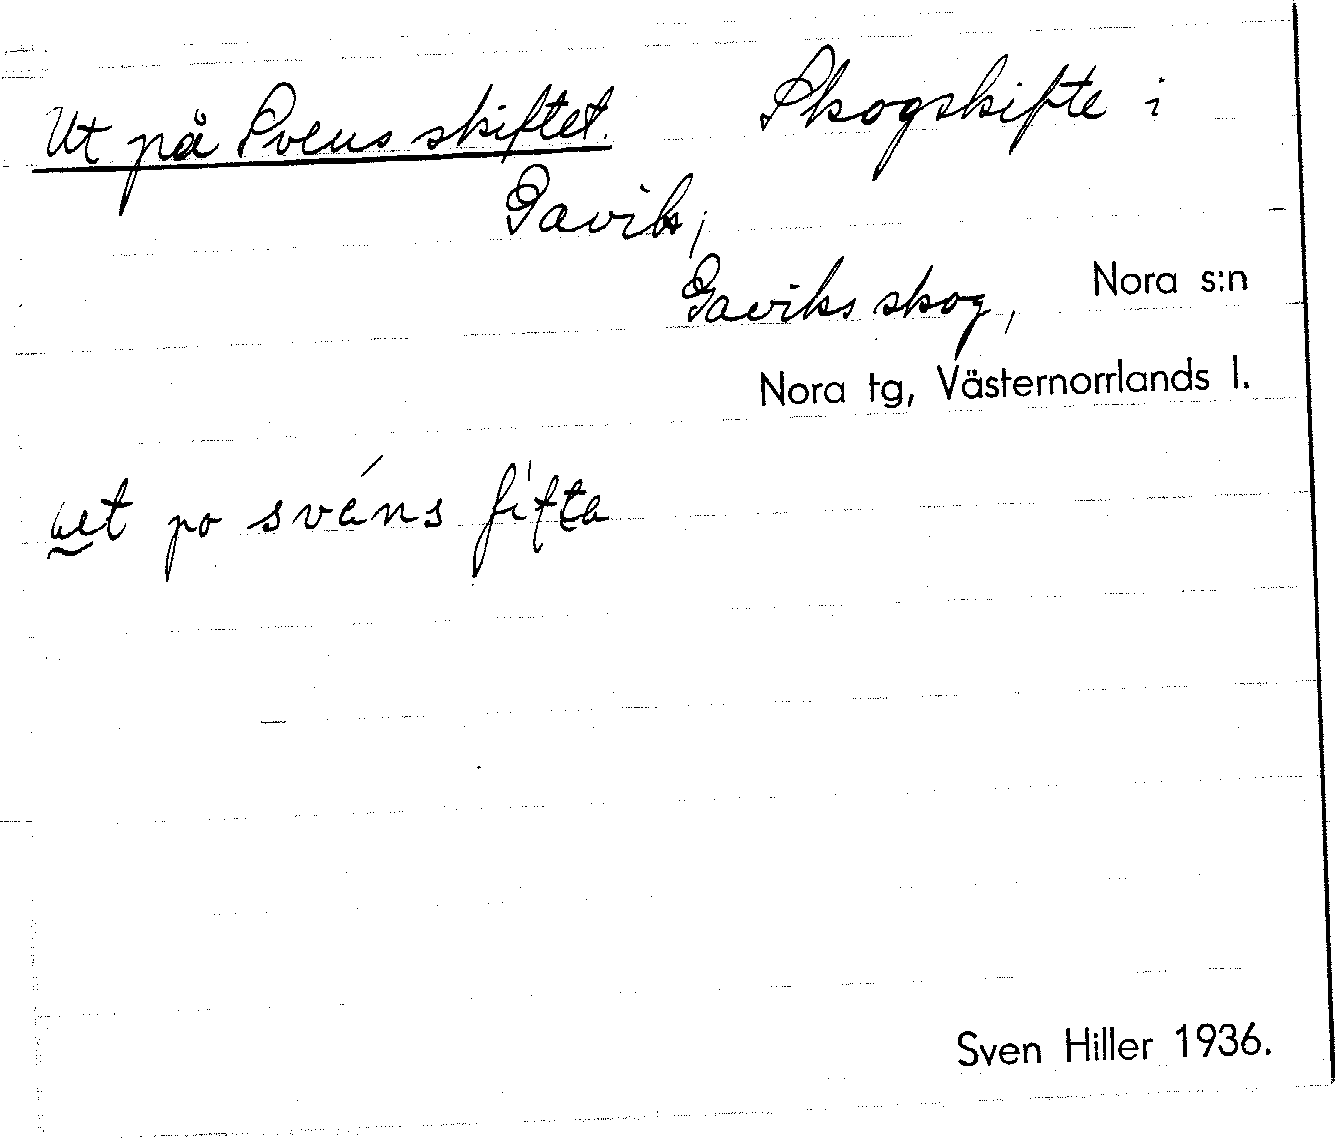 Ut på Svens skiftet. Skogskifte i
Gavik,
Gaviks skog, Nora s:n
Nora tg, Västernorrlands l.
po svéns
Sven Hiller 1936.